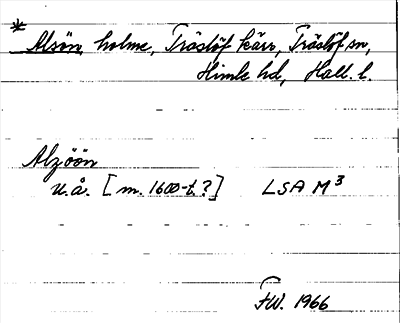 * Alsön, holme, Träslöf kärr, Träslöf sn,
Himle hd, Hall. l.
Alzöön
u.å. [m. 1600-t.?] LSA M3
FW. 1966